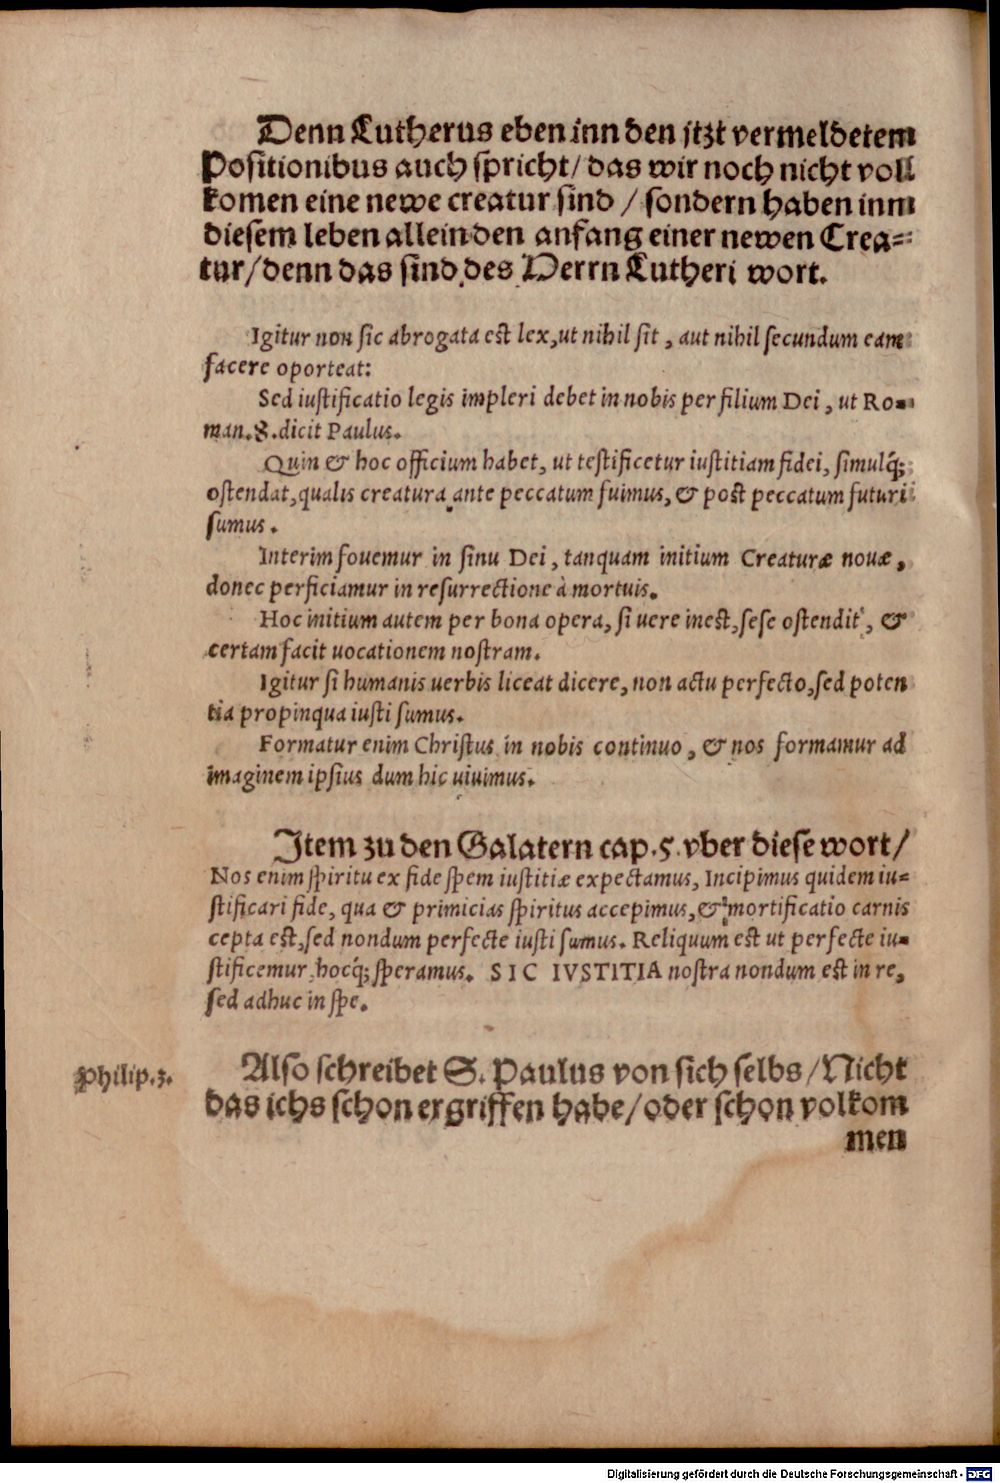 Denn Lutherus eben inn den itzt vermeldetem
Positionibus auch spricht/ das wir noch nicht voll
komen eine newe creatur sind / sondern haben inn
diesem leben allein den anfang einer newen Crea=
tur/denn das sind des Herrn Lutheri wort.
Igitur non sic abrogata est lex, ut nihil sit, aut nihil secundum eam
facere oporteat:
Sed iustificatio legis impleri debet in nobis per filium Dei, ut Ro=
man.8.dicit Paulus.
Quin & hoc officium habet, ut testificetur iustitiam fidei, simulq́;
ostendat, qualis creatura ante peccatum fuimus, & post peccatum futuri
sumus.
Interim fovemur in sinu Dei, tanquam initium Creaturæ novæ,
donec perficiamur in resurrectione à mortuis.
Hoc initium autem per bona opera, si vere inest, sese ostendit, &
certam facit vocationem nostram.
Igitur si humanis verbis liceat dicere, non actu perfecto, sed poten
tia propinqua iusti sumus.
Formatur enim Christus in nobis continuo, & nos formamur ad
imaginem ipsius dum hic vivimus.
Item zu den Galatern cap.5.vber diese wort/
Nos enim spiritu ex fide spem iustitiæ expectamus, Incipimus quidem iu=
stificari fide, qua & primicias spiritus accepimus, & mortificatio carnis
cepta est, sed nondum perfecte iusti sumus. Reliquum est ut perfecte iu=
stificemur hocq́; speramus. SIC IVSTITIA nostra nondum est in re,
sed adhuc in spe.
Philip.3.
Also schreibet S. Paulus von sich selbs/Nicht
das ichs schon ergriffen habe/oder schon volkom
men
Digitalisierung gefördert durch die Deutsche Forschungsgemeinschaft - DFG